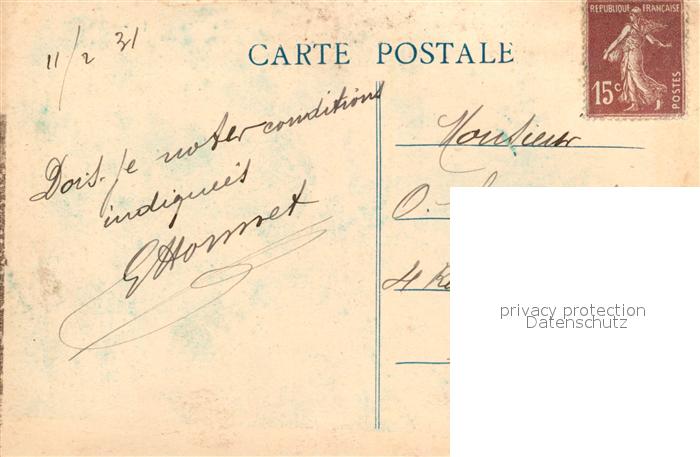 11/2 31
CARTE POSTALE
REPUBLIQUE FRANÇAISE
15c
POSTES
Dois-je noter conditions
indiquées
Monsieur
O.
4
privacy protection
Datenschutz